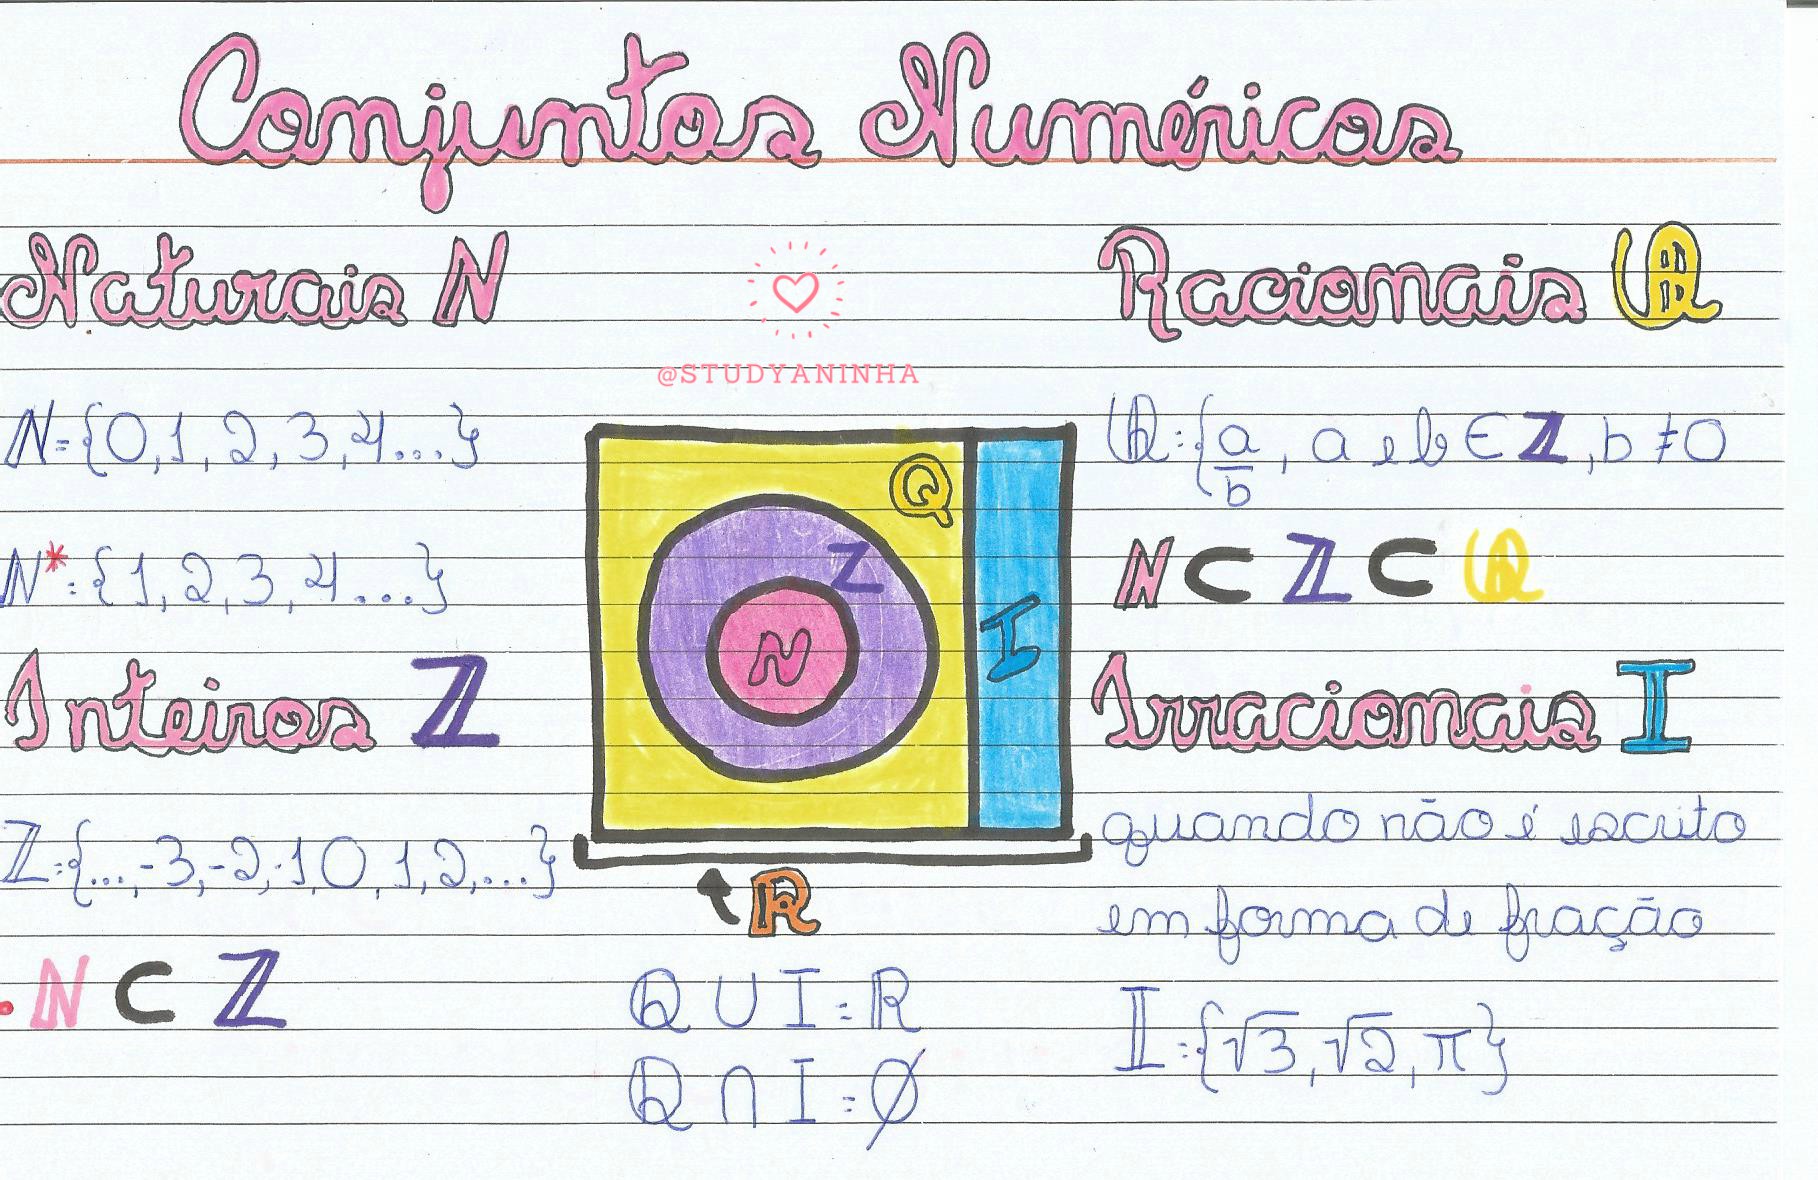 Conjuntos Numéricos
Naturais N
N={0,1,2,3,4...}
N*:{1,2,3,4...}
Inteiros Z
Z:{...,-3,-2,-1,0,1,2,...}
N ⊂ Z
@STUDYANINHA
Q
Z
N
I
R
Q ∪ I = R
Q ∩ I = Ø
Racionais Q
Q:{a/b, a e b ∈ Z, b ≠ 0
N ⊂ Z ⊂ Q
Irracionais I
quando não é escrito
em forma de fração
I:{√3,√2,π}